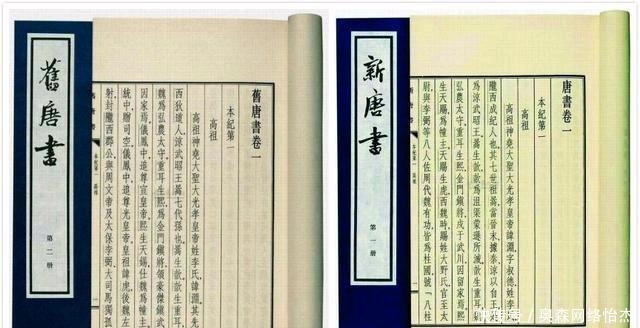 舊唐書
第二册
舊唐書卷一
本紀第一
高祖
高祖神堯大聖大光孝皇帝姓李氏,諱淵。其
西狄道人,涼武昭王暠七代孫也。暠生歆。歆生重耳
魏為弘農太守。重耳生熙,為金門鎮將,領豪傑鎮
因家焉。儀鳳中,追尊宣皇帝。熙生天錫,仕魏為幢主
統中,贈司空。儀鳳中,追尊光皇帝。皇祖諱虎,後魏左
射,封隴西郡公,與周文帝及太保李弼、大司馬獨孤
新唐書
第一册
唐書卷一
本紀第一
高祖
高祖神堯大聖大光孝皇帝諱淵,字叔德,姓李
隴西成紀人也。其七世祖暠,當晉末,據秦、涼以自王
為涼武昭王。暠生歆,歆為沮渠蒙遜所滅。歆生重耳
弘農太守。重耳生熙,金門鎮將,戍于武川,因留家焉
生天賜,為幢主。天賜生虎,西魏時,賜姓大野氏,官至太
尉,與李弼等八人佐周代魏有功,皆為柱國,號「八柱
奥森网络怡杰